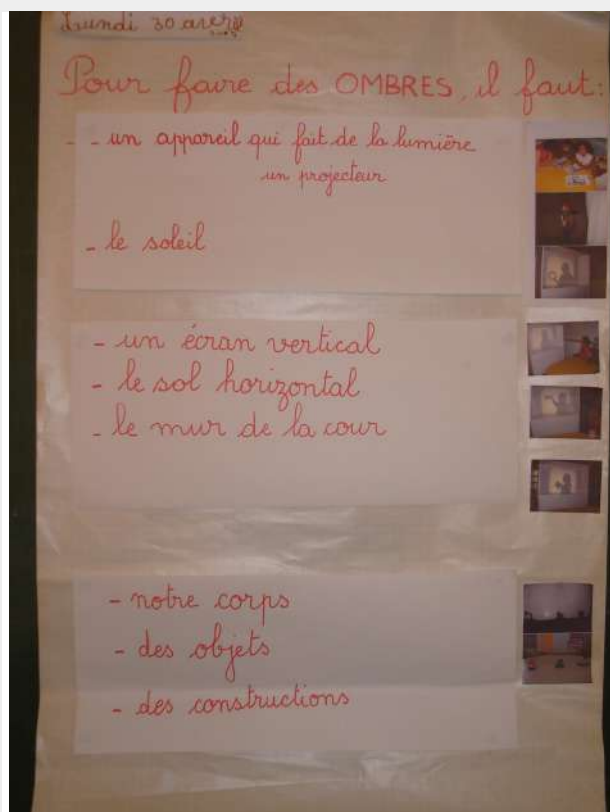 Lundi 30
Pour faire des OMBRES, il faut:
- - un appareil qui fait de la lumière
un projecteur
- le soleil
- un écran vertical
- le sol horizontal
- le mur de la cour
- notre corps
- des objets
- des constructions